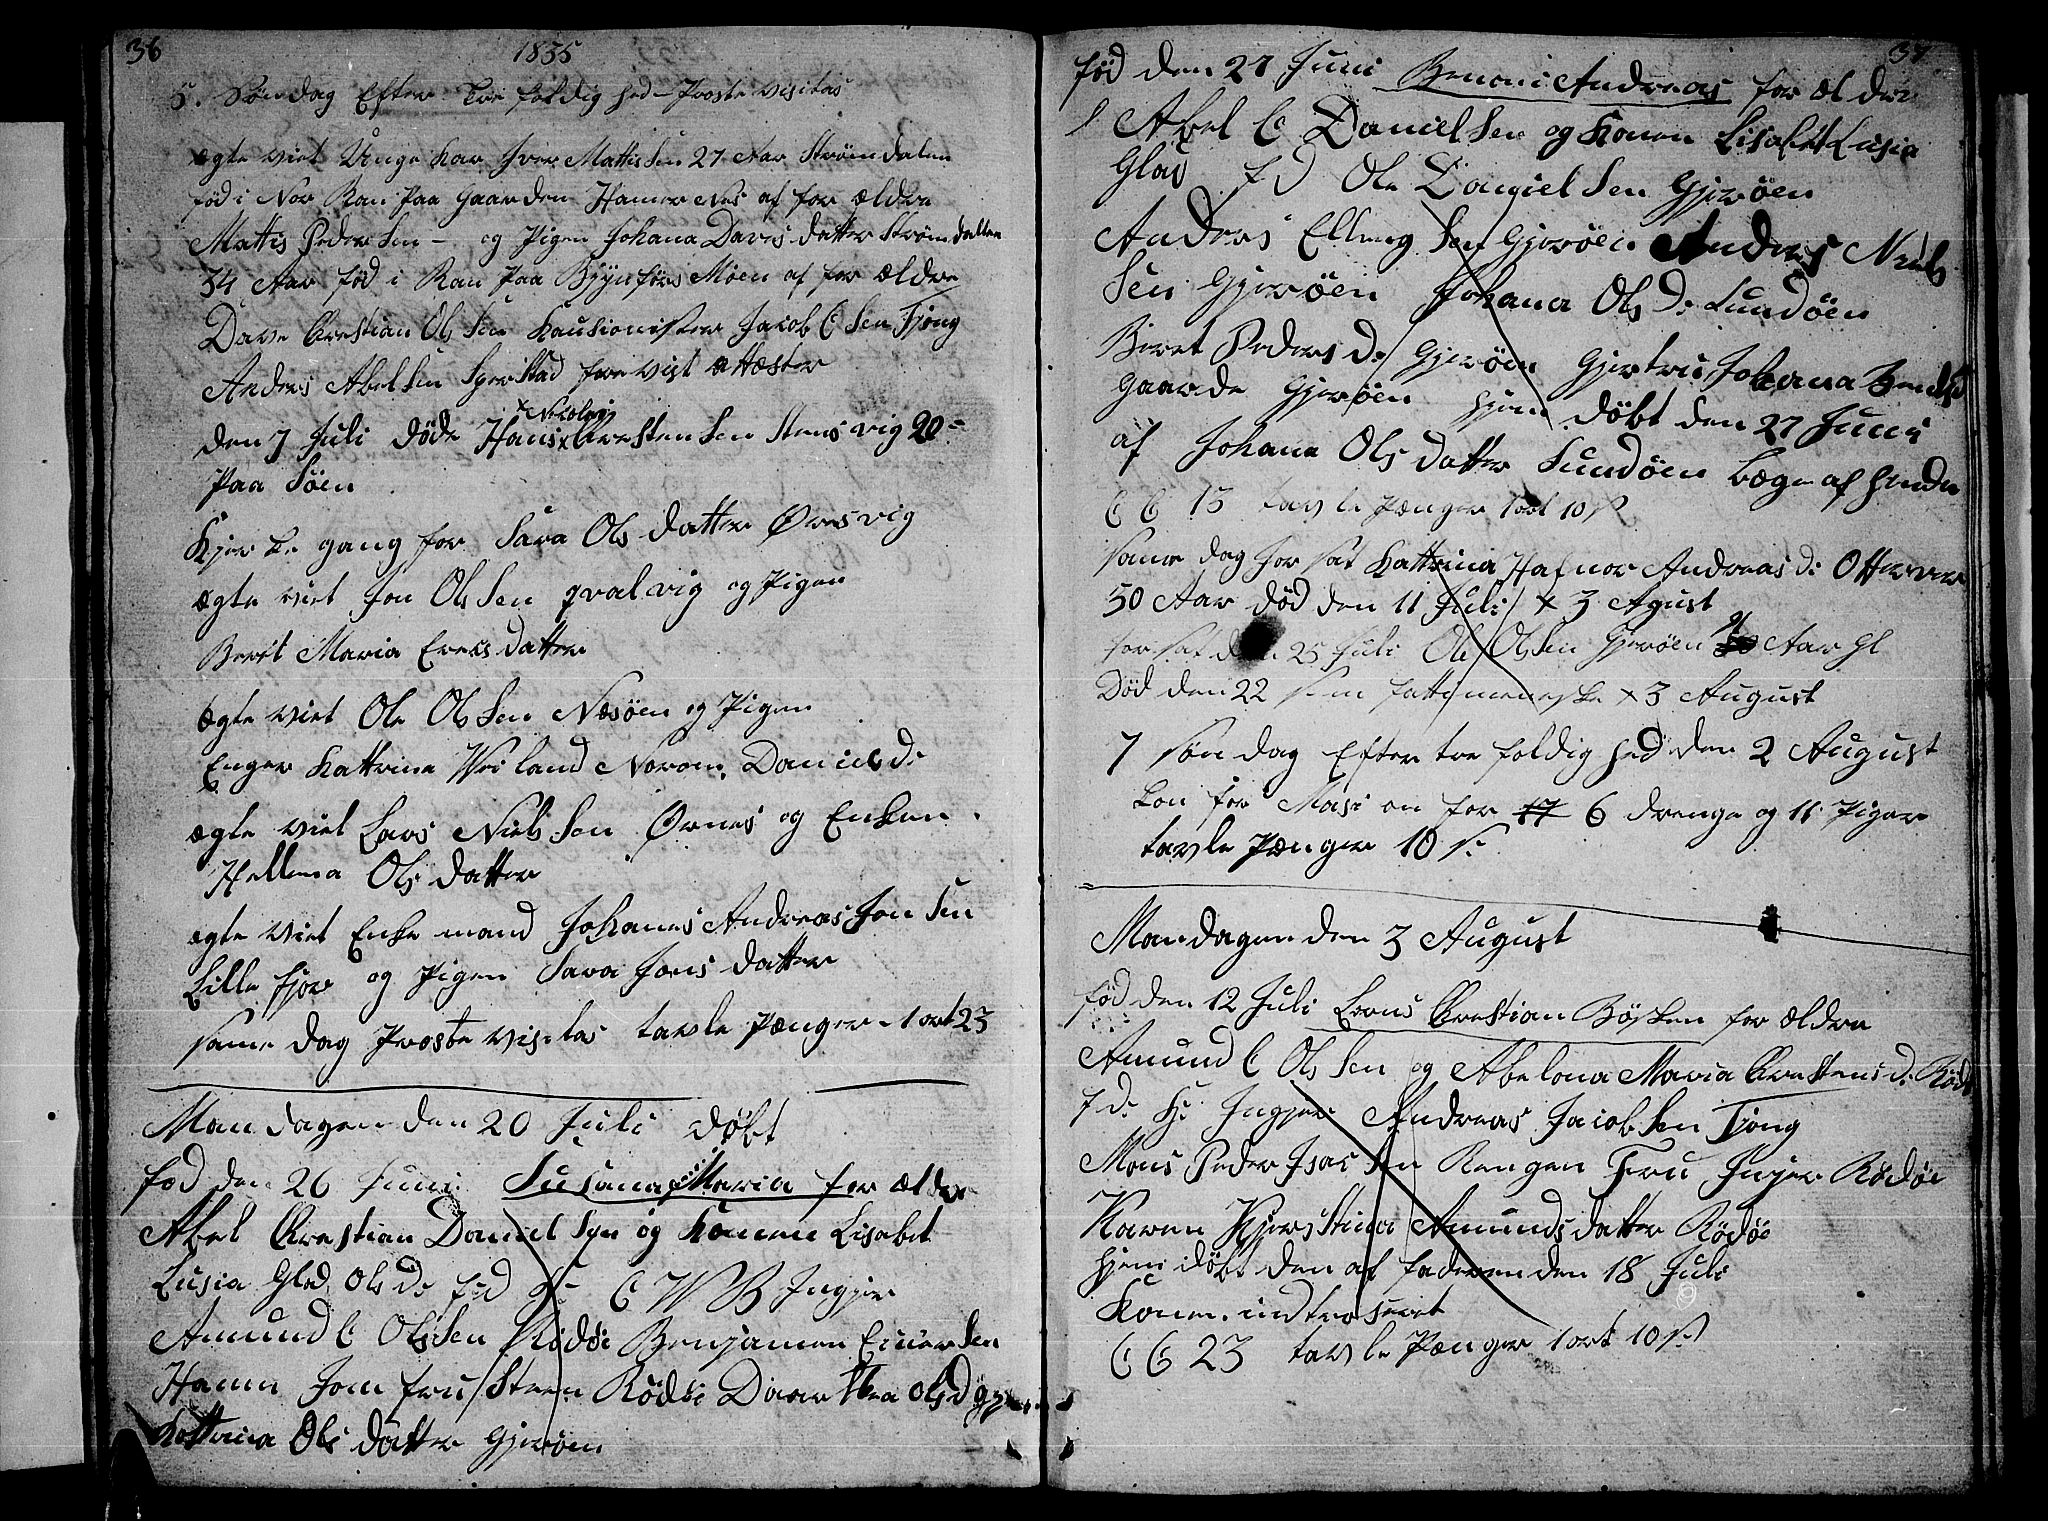 36
1835
5. Søndag Efter Tre foldig hed - Proste visitas
ægte viet Unge Kar Iver Mattis Sen 27 Aar Strømdalen
fød i Nor Ran Paa Gaarden Hamernes af for ældre
Mattis Peder Sen - og Pigen Johana Daves datter Strømdallen
34 Aar fød i Ran Paa Moen af for ældre
Dave Crestian Ols Sen Kausionister Jacob C Sen Tjong
Anders Abel Sen Sperstad forevist attæster
Nicolai
den 7 Juli døde Hans x Crestensen Stensvig 20
Paa Søen
Kjerke gang for Sara Ols datter Øresvig
ægte viet Jon Ols Sen qvalvig og Pigen
Berit Maria Erecs datter
ægte viet Ole Ols Sen Næsøen og Pigen
Enger Kattrina Daniels d:
ægte viet Lars Niels Sen Ørnes og Enken
Hellena Ols datter
ægte viet Enke mand Johanes Andreas Jon Sen
Lille fjor og Pigen Sara Jons datter
same dag Proste visitas tavle Pænger - 1 ort 23
Mandagen den 20 Juli døbt
fød den 26 Juni Susana Maria for ælder
Abel Crestian Daniel Sen og Konen Lisabet
Lusia Glad Ols d: fd C W B Ingjer
Amund C Ols Sen Rødøe Benjamen Sen
Hamn Jom fru Steen Rødøe Daarthea Ols d
Kattrina Ols datter Gjerøen
37
fød den 27 Juni Benoni Andreas for ældre
Abel C Daniel Sen og Konen Lisabet Lusia
Glad fd Ole Daniel Sen Gjerøen
Anders Elling Sen Gjerøen Anders Niels
Sen Gjerøen Johana Ols D: Sundøen
Beret Peders d: Gjerøen Gjertru Johana
gaarde Gjerøen hjem døbt den 27 Juni
af Johana Ols datter Sundøen bæge af hende
C C 15 tavle Pænger 1 ort 10 s
same dag for sat Kattrina Hafnor Andreas d: Otterver
50 Aar død den 11 Juli x 3 Agust
for sat den 25 Juli Ole Ols Sen Gjerøen Aar gl
Død den 22 som fattemeneske x 3 August
7 søndag Efter tre foldig hed den 2 August
kon for Masi on for 17 6 drenge og 11 Piger
tavle Pænger 10 s
Mandagen den 3 August
fød den 12 Juli Crestian for ældre
Amund C Ols Sen og Abelona Maria Crestens d: Rødø
fd: H: Ingjer Andreas Jacob Sen Tjong
Mons Peder Isac Sen Rengen Fru Injer Rødøe
Karen Kjerstina Amunds datter Rødøe
hjem døbt den af faderen den 18 Juli
Konen indtroseret
C C 23 tavle Pænger 1 ort 10 s